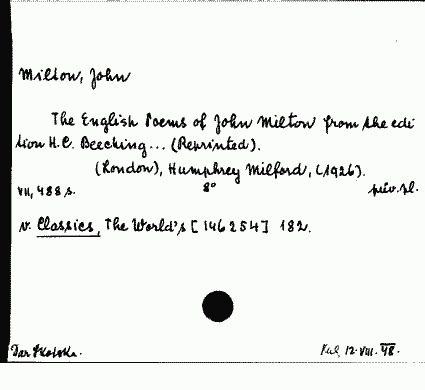 Milton, John
The English Poems of John Milton from the edi
tion H.C. Beeching... (Reprinted).
(London), Humphrey Milford, (1926).
VII, 488 s. 8° priv. pl.
v. Classics, The World's [146254] 182.
Dar 12.VIII.48.